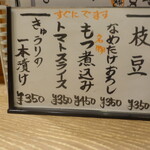 すぐにでます
枝豆
¥350
なめたけおろし
¥350
もつ煮込み
¥450
トマトスライス
¥350
きゅうりの
一本漬け
¥350